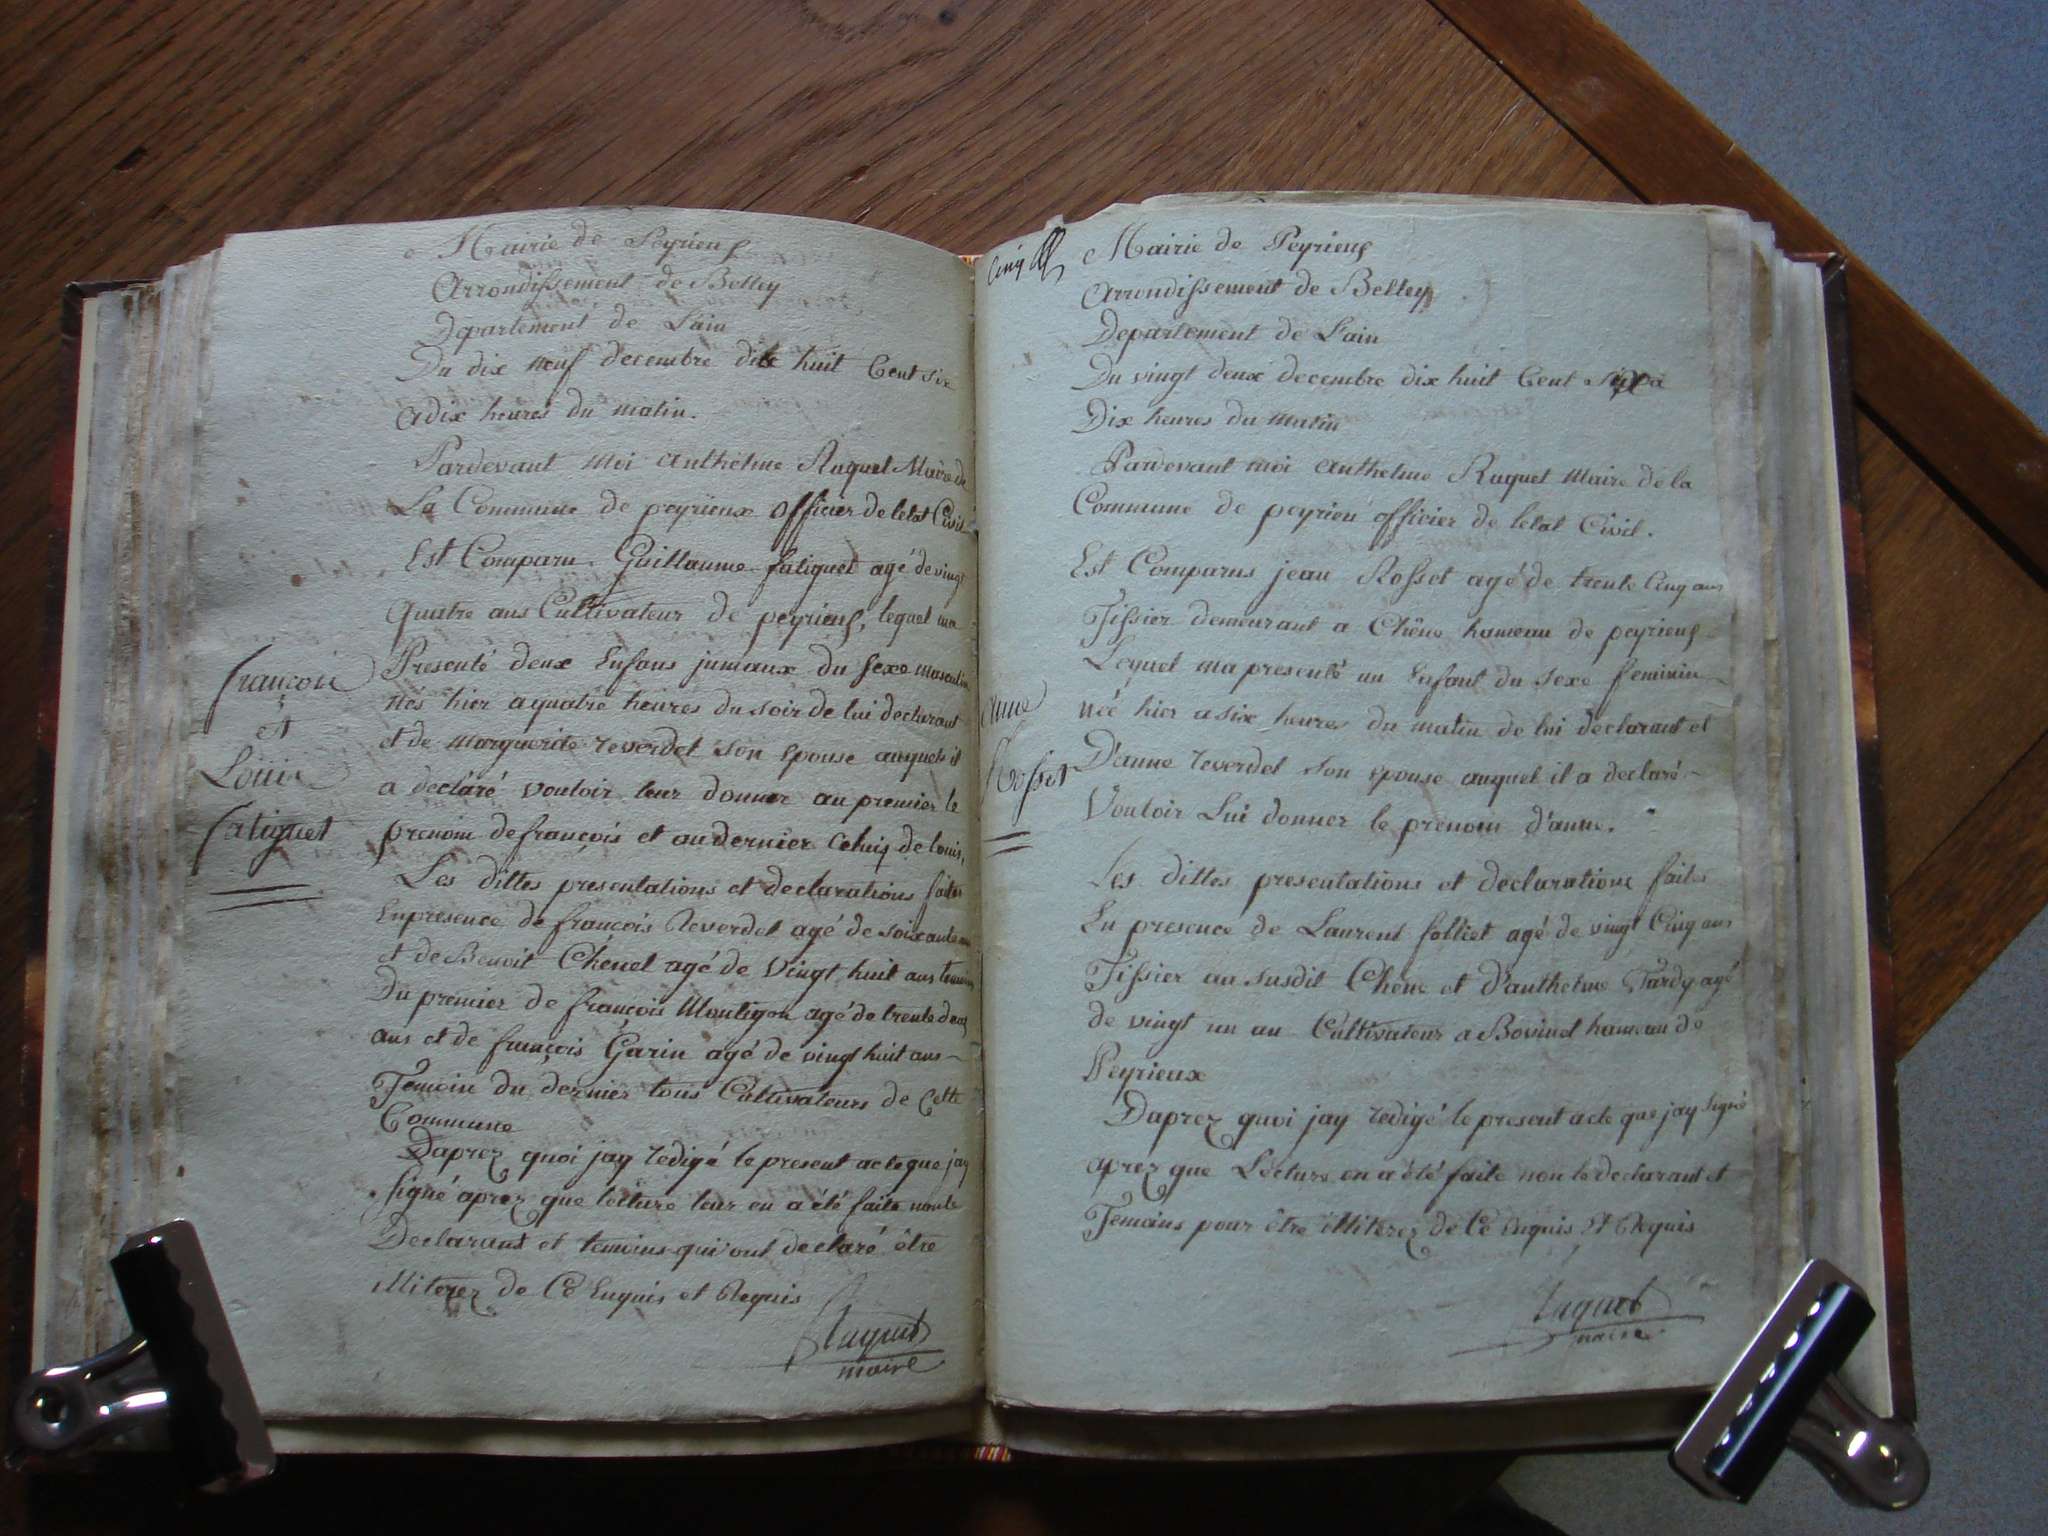 Mairie de Peyrieuf
Arrondissement de Belley
Departement de Lain
Du dix neuf decembre dix huit Cent six
a dix heures du matin.
Pardevant moi anthelme Ruquet Maire de
La Commune de peyrieux officier de letat Civil
Est Comparu Guillaume fatiguet agé de vingt
quatre ans Cultivateur de peyrieuf, lequel ma
Presenté deux Enfans jumaux du sexe masculin
nés hier a quatre heures du soir de lui declarant
et de marguerite reverdel son epouse auquels il
a declaré vouloir leur donner au premier le
prenom de françois et au dernier celuij de louis,
Les dittes presentations et declarations faites
En presence de françois Reverdel agé de soixante ans
et de Benoit Chenel agé de vingt huit ans temoins
Du premier de françois Montigon agé de trente deux
ans et de françois Garin agé de vingt huit ans
Temoin du dernier tous Cultivateurs de Cette
Commune
Daprez quoi jay redigé le present acte que jay
signé aprez que lecture leur en a été faite non le
Declarant et temoins qui ont declaré être
illiterez de Ce Enquis et Requis
Ruquet
maire
françois
et
Loüis
fatiguet
Cinq
Mairie de Peyrieuf
Arrondissement de Belley
Departement de Lain
Du vingt deux decembre dix huit Cent six a
Dix heures du matin
Pardevant moi anthelme Ruquet maire de la
Commune de peyrieu officier de letat Civil.
Est Comparus jean Rosset agé de trente Cinq ans
Tissier demeurant a Chêne hameau de peyrieuf
Lequel ma presenté un Enfant du sexe feminin
née hier a six heures du matin de lui declarant et
D'anne reverdel son epouse auquel il a declaré
Vouloir Lui donner le prenom d'anne.
Les dittes presentations et declarations faites
En presence de Laurent folliet agé de vingt Cinq ans
Tissier au susdit Chêne et d'anthelme Tardy agé
de vingt un an Cultivateur a Bovinel hameau de
Peyrieux
Daprez quoi jay redigé le present acte que jay signé
aprez que Lecture en a été faite non le declarant et
Temoins pour être illiterez de Ce Enquis et Requis
Ruquet
maire
anne
Rosset